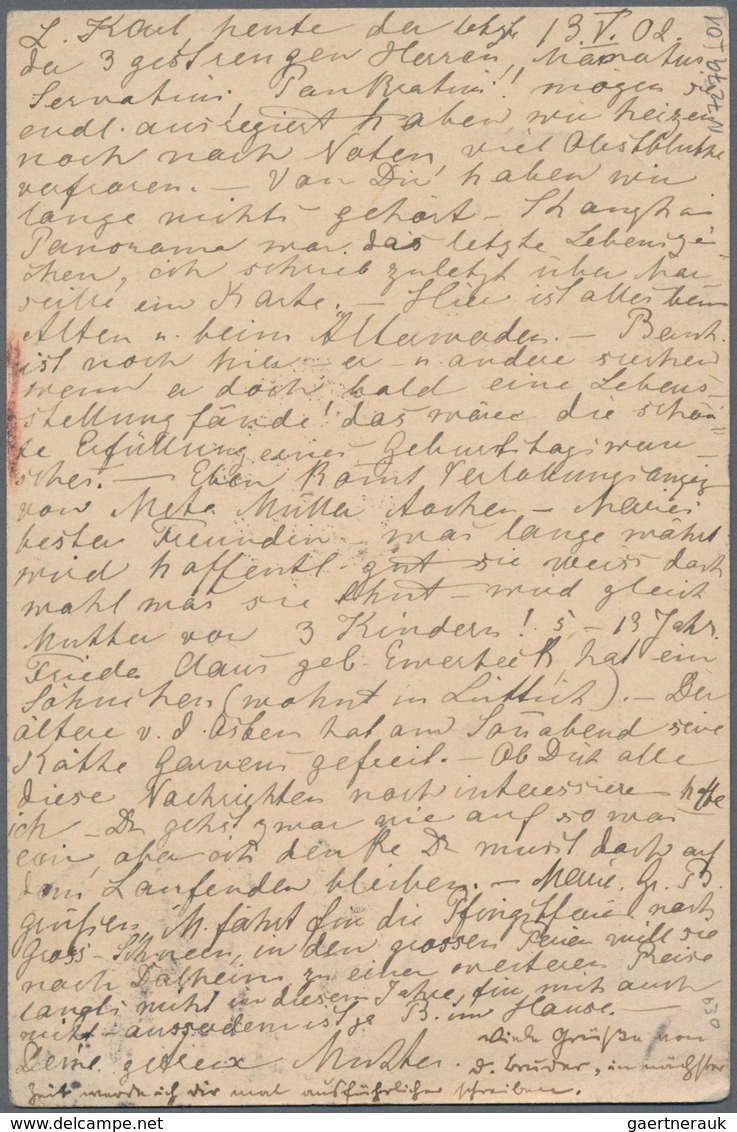 L. Karl, heute der letzte 13. V. 02.
der 3 gestrengen Herren, Mamertus
Servatius, Pankratius!! mögen sie
endl. ausregiert haben, wir heizen
noch nach Noten, viel Obstblüthe
erfroren. — Von Dir haben wir
lange nichts gehört — Shanghai
Panorama war das letzte Lebenszei-
chen, ich schrieb zuletzt über Mar-
seille ein Karte. — Hier ist alles beim
Alten u. beim Älterwerden. —
ist noch hier — er u. andere suchen
wenn er doch bald eine Lebens-
stellung fände! das wäre die schön-
te Erfüllung eines Geburtstagswun-
sches. — Eben kommt Verlobungsanzeige
von Meta Müller Aachen — Maries
bester Freundin — was lange währt
wird hoffentl. gut sie weiss doch
wohl was sie thut — wird gleich
Mutter von 3 Kindern! 5 – 13 Jahr.
Frieda Claus geb. Ewerbeck, hat ein
Söhnchen (wohnt in Lüttich). — Der
ältere v. d. Osten hat am Sonnabend seine
Käthe Garvens gefreit. — Ob Dich alle
diese Nachrichten noch interessieren hoffe
ich — Du gehst zwar nie auf so was
ein, aber ich denke Du musst doch auf
dem Laufenden bleiben. — Marie, Gr. B.
grüßen, M. fährt für die Pfingstferien nach
Gross-Schneen, in den grossen Ferien will sie
nach Dalheim zu einer weiteren Reise
langts nicht in diesem Jahre, für mich auch
nicht — ausserdem ist ja B. im Hause. —
Deine getreue Mutter.
Viele Grüße von
d. Bruder, in nächster
Zeit werde ich dir mal ausführlicher schreiben.
N7279-01
630
gaertnerauk